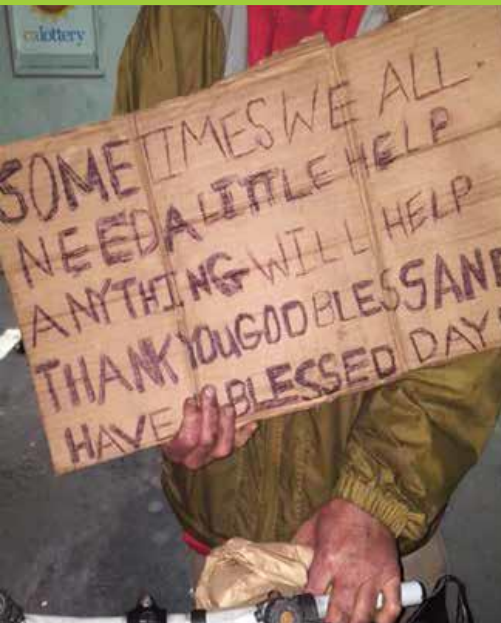 calottery
SOMETIMES WE ALL.
NEED A LITTLE HELP
ANYTHING WILL HELP
THANK YOU GOD BLESS AND
HAVE A BLESSED DAY!